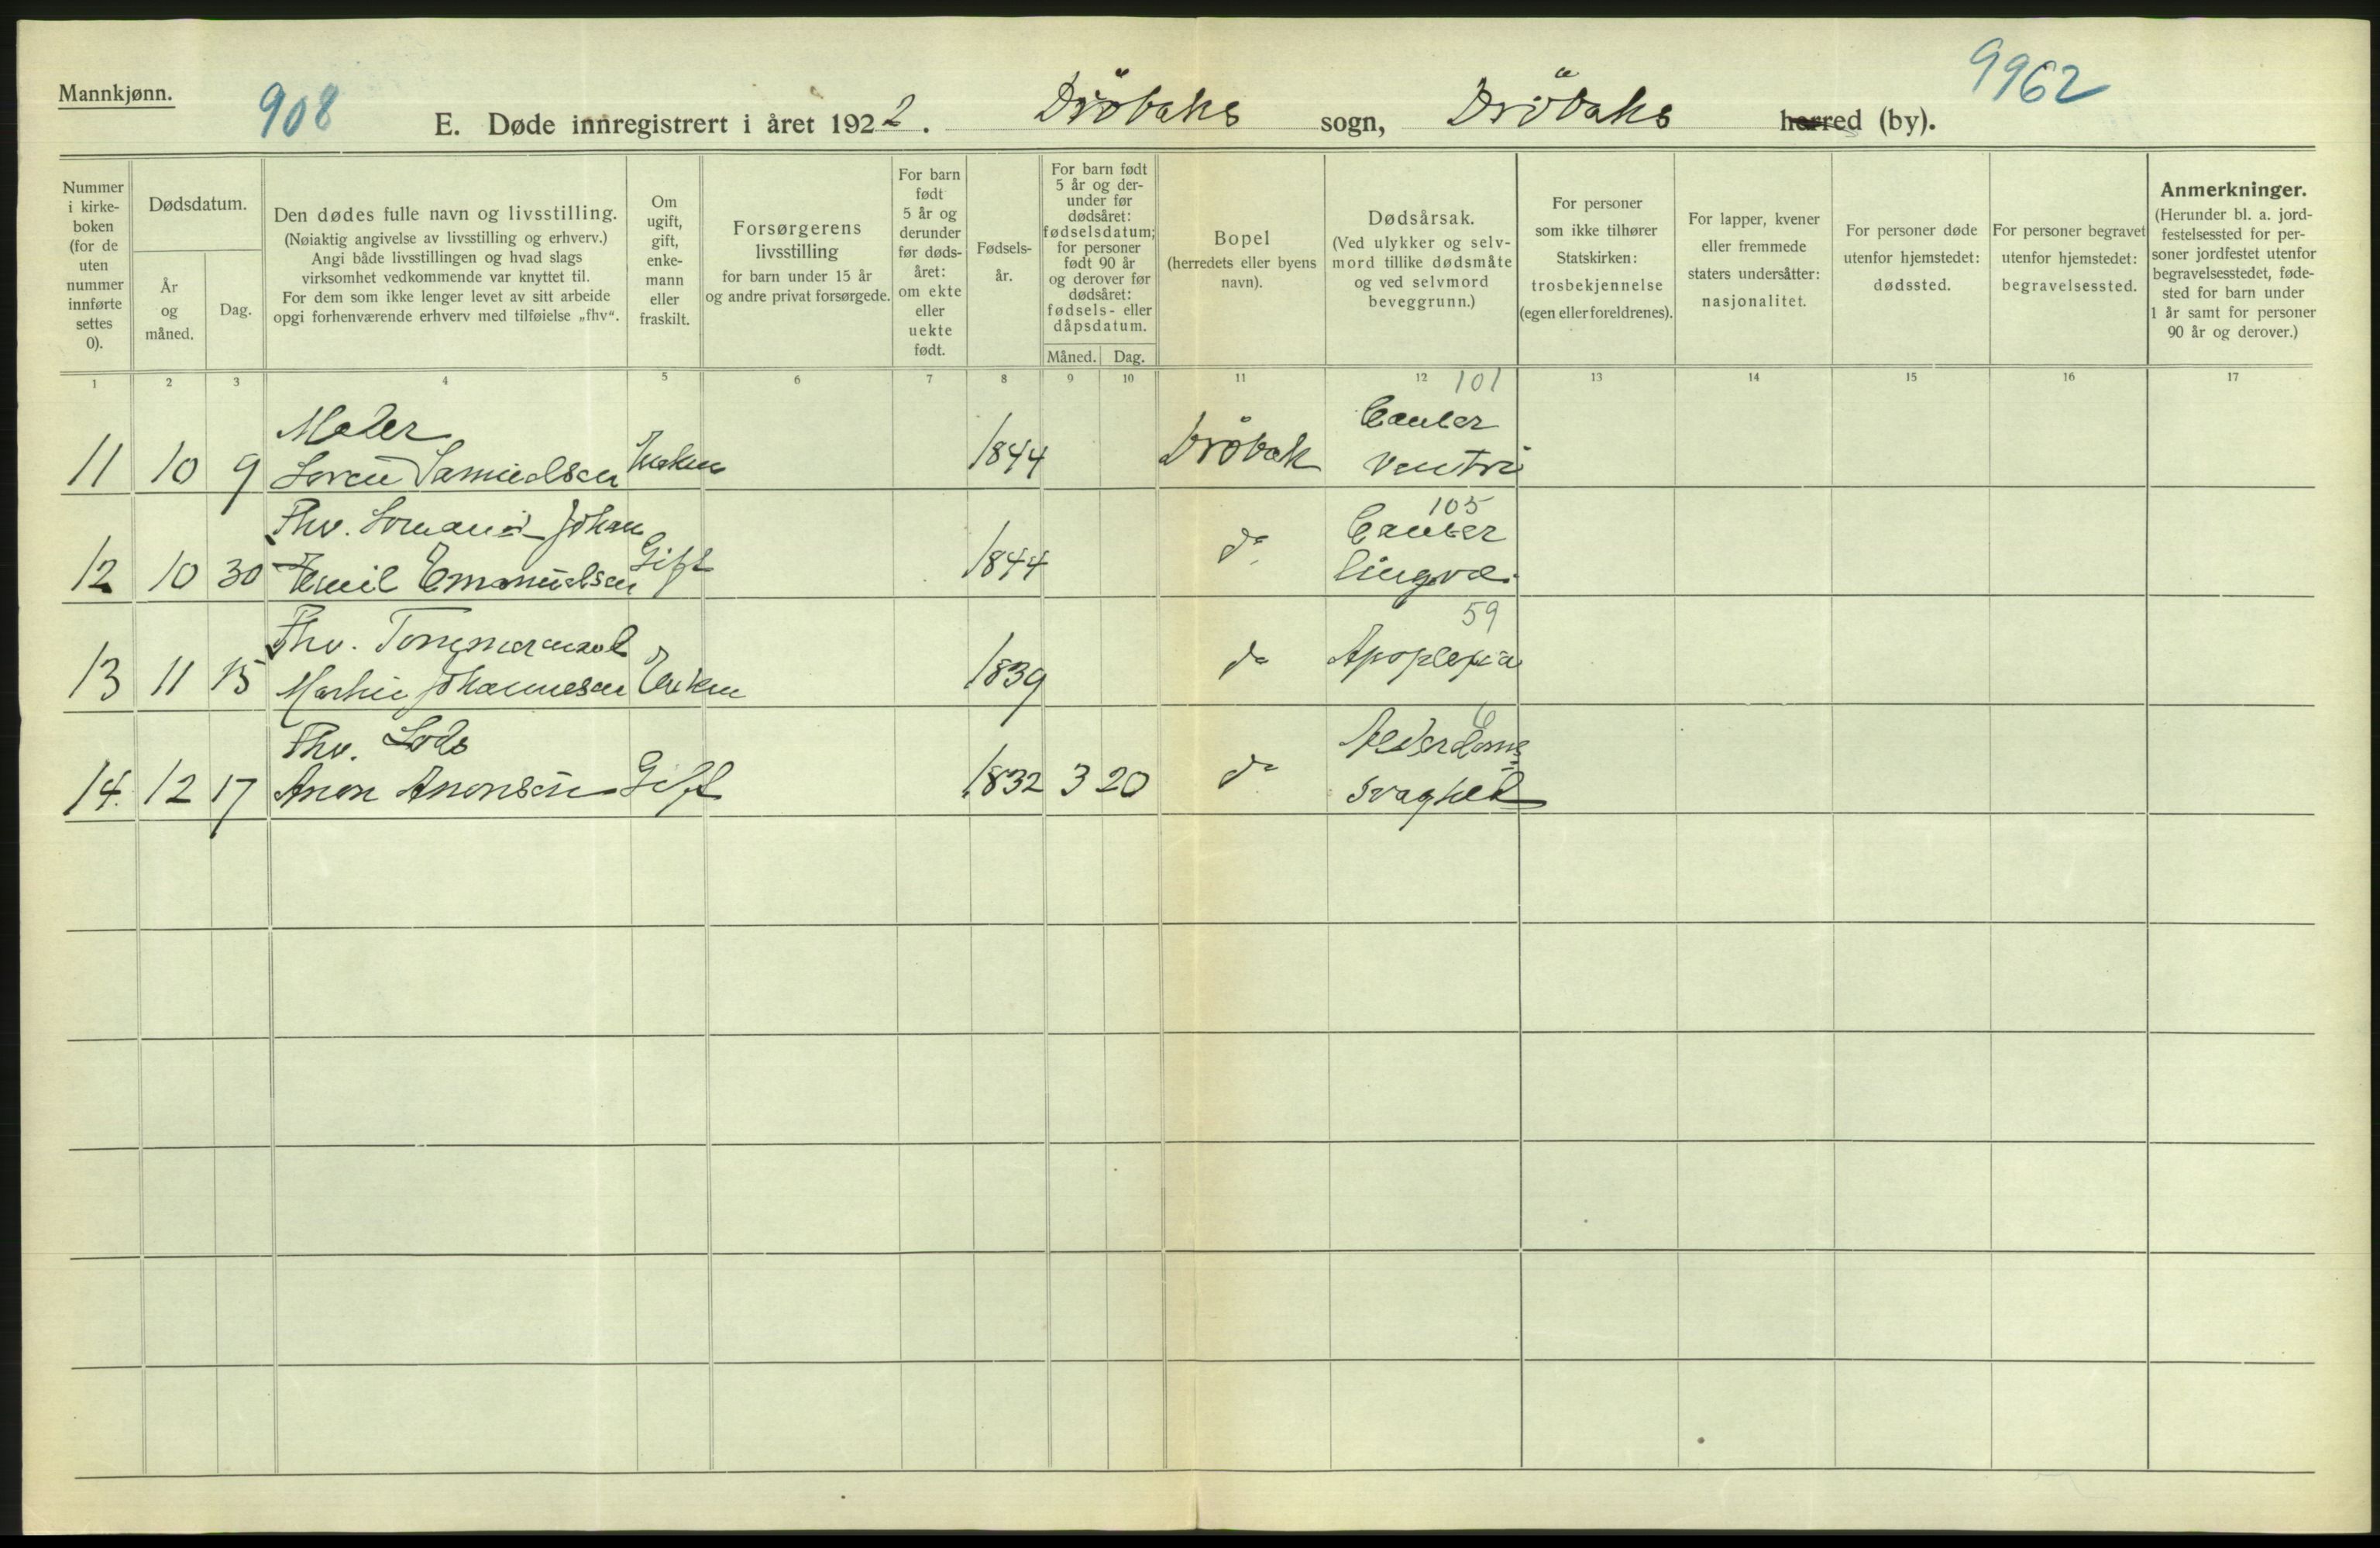 Mannkjønn.
908
9962
E. Døde innregistrert i året 1922. Dröbaks sogn, Dröbaks herred (by).
Nummer i kirke- boken (for de uten nummer innførte settes 0).
Dødsdatum.
År og måned.
Dag.
Den dødes fulle navn og livsstilling.
(Nøiaktig angivelse av livsstilling og erhverv.)
Angi både livsstillingen og hvad slags
virksomhet vedkommende var knyttet til.
For dem som ikke lenger levet av sitt arbeide
opgi forhenværende erhverv med tilføielse „fhv“.
Om ugift, gift, enke- mann eller fraskilt.
Forsørgerens
livsstilling
for barn under 15 år
og andre privat forsørgede.
For barn født 5 år og derunder før døds- året: om ekte eller uekte født.
Fødsels- år.
For barn født 5 år og der- under før dødsåret: fødselsdatum; for personer født 90 år og derover før dødsåret: fødsels- eller dåpsdatum.
Måned.
Dag.
Bopel
(herredets eller byens
navn).
Dødsårsak.
(Ved ulykker og selv-
mord tillike dødsmåte
og ved selvmord
beveggrunn.)
For personer
som ikke tilhører
Statskirken:
trosbekjennelse
(egen eller foreldrenes).
For lapper, kvener
eller fremmede
staters undersåtter:
nasjonalitet.
For personer døde
utenfor hjemstedet:
dødssted.
For personer begravet
utenfor hjemstedet:
begravelsessted.
Anmerkninger.
(Herunder bl. a. jord-
festelsessted for per-
soner jordfestet utenfor
begravelsesstedet, føde-
sted for barn under
1 år samt for personer
90 år og derover.)
1 2 3 4 5 6 7 8 9 10 11 12 13 14 15 16 17
101
Maler Cancer
11 10 9 Soren Samuelsen Enkem 1844 Dröbak Ventri
105
Fhv. Sömand Johan Cancer
12 10 30 Emil Emanuelsen Gift 1844 do lingvæ.
59
Fhv. Tømmermand
13 11 15 Martin Johannesen Enkem 1839 do Apoplexia
6
Fhv. Lods Alderdoms
14. 12 17 Anon Anonsen Gift 1832 3 20 do svaghed